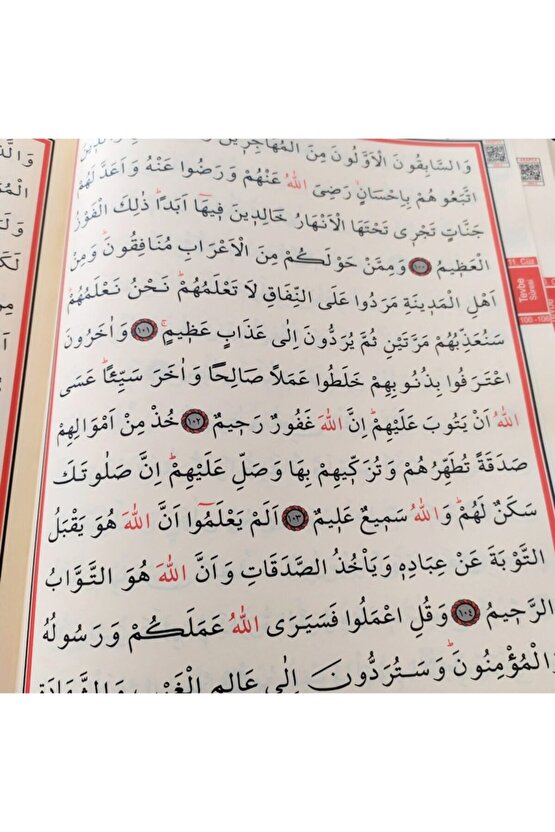 وَالسَّابِقُونَ الْاَوَّلُونَ مِنَ الْمُهَاجِرِينَ
اتَّبَعُوهُمْ بِاِحْسَانٍۙ رَضِيَ اللّٰهُ عَنْهُمْ وَرَضُوا عَنْهُ وَاَعَدَّ لَهُمْ
جَنَّاتٍ تَجْرِي تَحْتَهَا الْاَنْهَارُ خَالِدِينَ فِيهَٓا اَبَدًاۜ ذٰلِكَ الْفَوْزُ
الْعَظِيمُ ﴿١٠٠﴾ وَمِمَّنْ حَوْلَكُمْ مِنَ الْاَعْرَابِ مُنَافِقُونَۜ وَمِنْ
اَهْلِ الْمَدِينَةِ مَرَدُوا عَلَى النِّفَاقِ لَا تَعْلَمُهُمْۜ نَحْنُ نَعْلَمُهُمْۜ
سَنُعَذِّبُهُمْ مَرَّتَيْنِ ثُمَّ يُرَدُّونَ اِلٰى عَذَابٍ عَظِيمٍۚ ﴿١٠١﴾ وَاٰخَرُونَ
اعْتَرَفُوا بِذُنُوبِهِمْ خَلَطُوا عَمَلًا صَالِحًا وَاٰخَرَ سَيِّئًاۜ عَسَى
اللّٰهُ اَنْ يَتُوبَ عَلَيْهِمْۜ اِنَّ اللّٰهَ غَفُورٌ رَحِيمٌ ﴿١٠٢﴾ خُذْ مِنْ اَمْوَالِهِمْ
صَدَقَةً تُطَهِّرُهُمْ وَتُزَكِّيهِمْ بِهَا وَصَلِّ عَلَيْهِمْۜ اِنَّ صَلٰوتَكَ
سَكَنٌ لَهُمْۜ وَاللّٰهُ سَمِيعٌ عَلِيمٌ ﴿١٠٣﴾ اَلَمْ يَعْلَمُٓوا اَنَّ اللّٰهَ هُوَ يَقْبَلُ
التَّوْبَةَ عَنْ عِبَادِهِ وَيَأْخُذُ الصَّدَقَاتِ وَاَنَّ اللّٰهَ هُوَ التَّوَّابُ
الرَّحِيمُ ﴿١٠٤﴾ وَقُلِ اعْمَلُوا فَسَيَرَى اللّٰهُ عَمَلَكُمْ وَرَسُولُهُ
وَالْمُؤْمِنُونَۜ وَسَتُرَدُّونَ اِلٰى عَالِمِ الْغَيْبِ وَالشَّهَادَةِ
11. Cüz
Tevbe
Suresi
100 -106